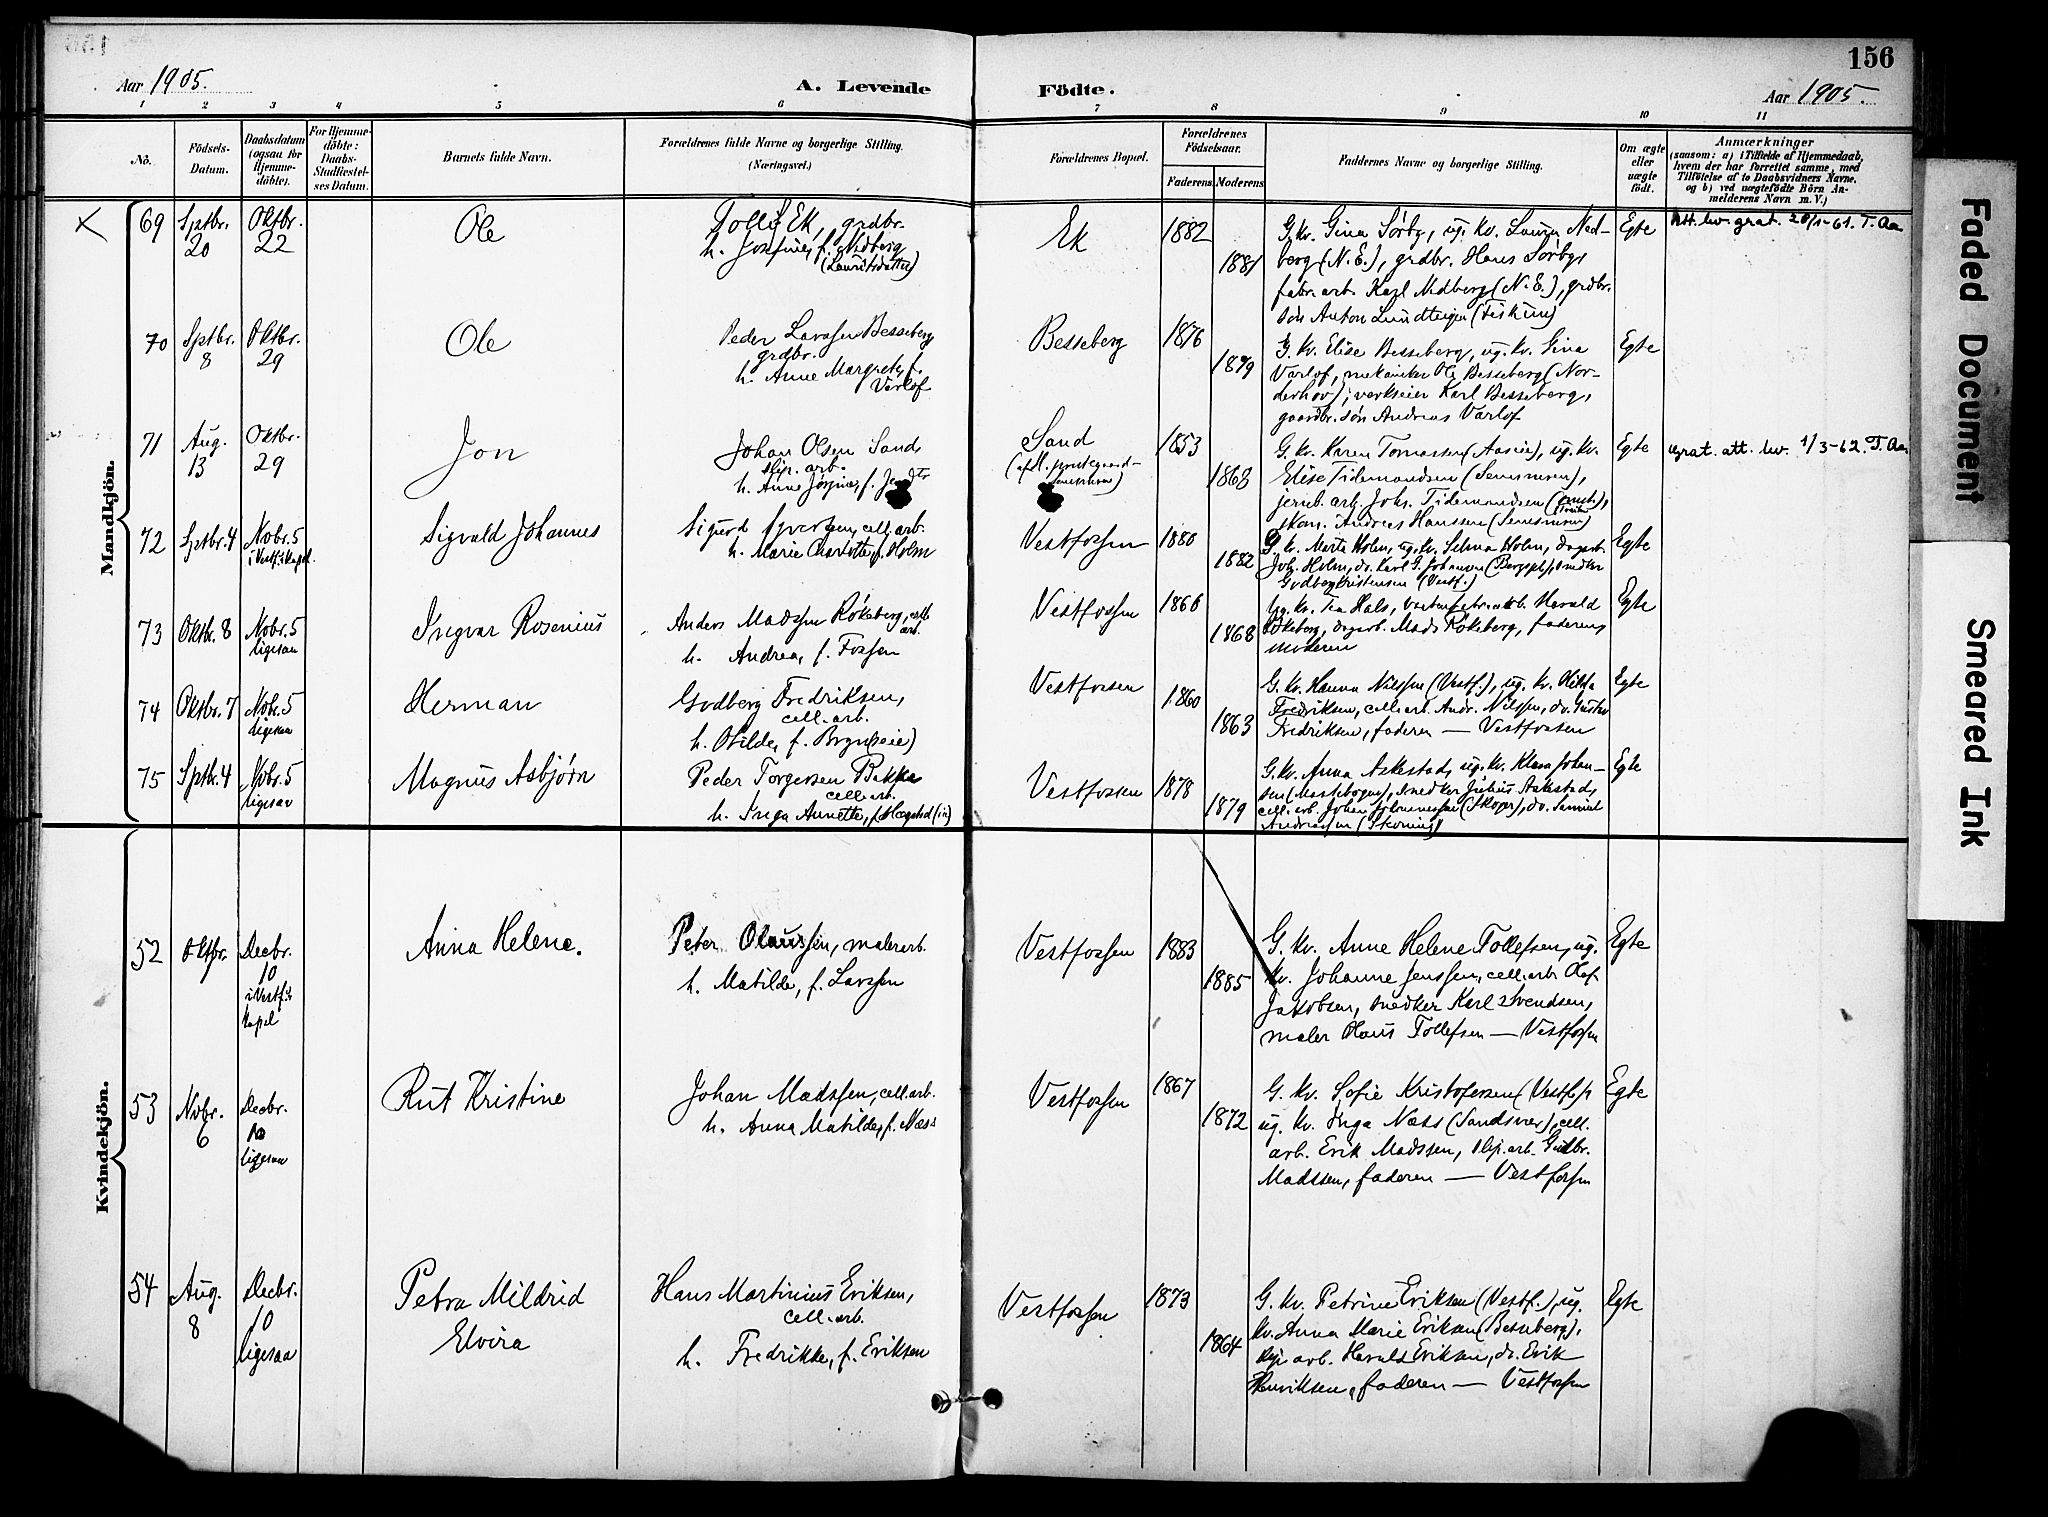 156
Aar 1905.
A. Levende Födte.
Aar 1905.
1 2 3 4 5 6 7 8 9 10 11
No.
Födsels-Datum.
Daabsdatum (ogsaa for Hjemme-döbte).
For Hjemme-döbte: Daabs-Stadfæstel-ses Datum.
Barnets fulde Navn.
Forældrenes fulde Navne og borgerlige Stilling.
(Næringsvei.)
Forældrenes Bopæl.
Forældrenes Födselsaar.
Faderens Moderens
Faddernes Navne og borgerlige Stilling.
Om ægte eller uægte födt.
Anmærkninger
(saasom: a) i Tilfælde af Hjemmedaab, hvem der har forrettet samme, med Tilföielse af to Daabsvidners Navne, og b) ved uægtefödte Börn An-melderens Navn m. V.)
Mandkjön.
X 69 Sptbr. 20
Oktbr. 22
Ole
Ek, grdbr.
h. Josefine, f. Nedberg
(Lauritsdatter)
Ek
1882
1881
G. kv. Gina Sørby, ug. kv. Laura Ned-
berg (N. E.), grdbr. Hans Sørby,
fabr. arb. Karl Nedberg (N. E.), grdbr.
søn Anton Lundteigen (Fiskum)
Egte
Att. lev. grat. 20/1-61. T. Aa
70 Sptbr. 8
Oktbr. 29
Ole
Peder Larssen Besseberg
grdbr.
h. Anne Margrete, f.
Varlof
Besseberg
1876
1879
G. kv. Elise Besseberg, ug. kv. Gina
Varlof, mekaniker Ole Besseberg (Nor-
derhov), verkseier Karl Besseberg,
gaardbr. søn Andreas Varlof
Egte
71 Aug. 13
Oktbr. 29
Jon
Johan Olsen Sand
slip. arb.
h. Anne Jørgine, f.
Sand
1853
1868
G. kv. Karen Tomassen (Aasen), ug. kv.
Elise Tidemandsen (Semsmoen),
jernb. arb. Johs. Tidemandsen
skom. Andreas Hanssen (Semsmoen)
Egte
ugrat. att. lev. 1/3-62. T. Aa
72 Sptbr. 4
Nobr. 5
i Vestf. kapel.
Sigvald Johannes
Sigurd Syversen, cell. arb.
h. Marie Charlotte, f. Holm
Vestfossen
1880
1882
G. kv. Marta Holm, ug. kv. Selma Holm, dagarb.
Joh. Holm, do. Karl G. Johansen snedker
Godberg Kristensen (Vestf.)
Egte
73 Oktbr. 8
Nobr. 5
ligesaa
Ingvar Rosenius
Anders Madssen Røkeberg, cell.
arb.
h. Andrea, f. Fossen
Vestfossen
1866
1868
Ug. kv. Tea Hals, Harald
Røkeberg, dagarb. Mads Røkeberg, faderen,
moderen
Egte
74 Oktbr. 7
Nobr. 5
ligesaa
Herman
Godberg Fredriksen,
cell. arb.
h. Otilde, f. Bryn(seie)
Vestfossen
1860
1863
G. kv. Hanna Nilssen (Vestf.), ug. kv. Hilda
Fredriksen, cell. arb. Andr. Nilssen, do. Gustav
Fredriksen, faderen — Vestfossen
Egte
75 Sptbr. 4
Nobr. 5
ligesaa
Magnus Asbjørn
Peder Torgersen Bakke
cell. arb.
h. Inga Annette, f. Hægstad(in)
Vestfossen
1878
1879
G. kv. Anna Askestad, ug. kv. Klara Johan-
sen snedker Julius Askestad,
cell. arb. Johan Johannessen do. Samuel
Andreassen
Egte
Kvindekjön.
52 Oktbr.
Decbr. 10
i Vestf.s kapel
Anna Helene.
Peter Olaussen, malerarb.
h. Matilde, f. Larssen
Vestfossen
1883
1885
G. kv. Anne Helene Tollefsen, ug.
kv. Johanne Jenssen, cell. arb. Olaf
Jakobsen, snedker Karl Svendsen,
maler Olaus Tollefsen — Vestfossen
Egte
53 Nobr. 6
Decbr. 10
ligesaa
Rut Kristine
Johan Madssen, cell. arb.
h. Anna Matilde, f. Næss
Vestfossen
1867
1872
G. kv. Sofie Kristofersen (Vestf.),
ug. kv. Inga Næss (Sandsvær), cell.
arb. Erik Madssen, slip. arb. Gudbr.
Madssen, faderen — Vestfossen
Egte
54 Aug. 8
Decbr. 10
ligesaa
Petra Mildrid
Elvira
Hans Martinius Eriksen,
cell. arb.
h. Fredrikke, f. Eriksen
Vestfossen
1873
1864
G. kv. Petrine Eriksen (Vestf.), ug.
kv. Anna Marie Eriksen (Besseberg),
slip. arb. Harald Eriksen, do. Erik
Henriksen, faderen — Vestfossen
Egte
Faded Document
Smeared Ink